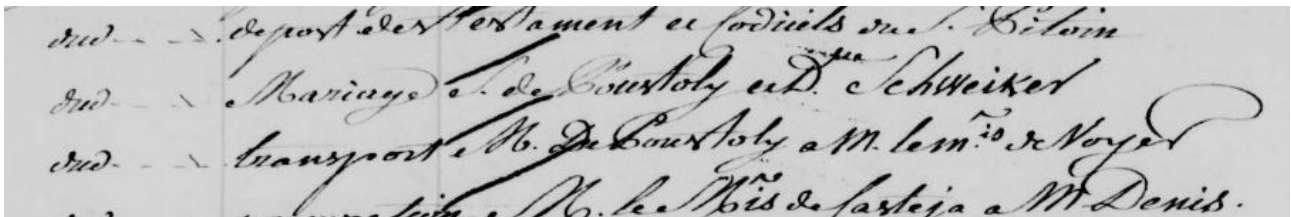 dud depost des testament et Codicils du S. Pitoin
dud Mariage S. de Poustoly et D.elle Schweiker
dud transport M. De Poustoly a M. le m.is de Voyer
M. le M.is de Casteja a M Denis.